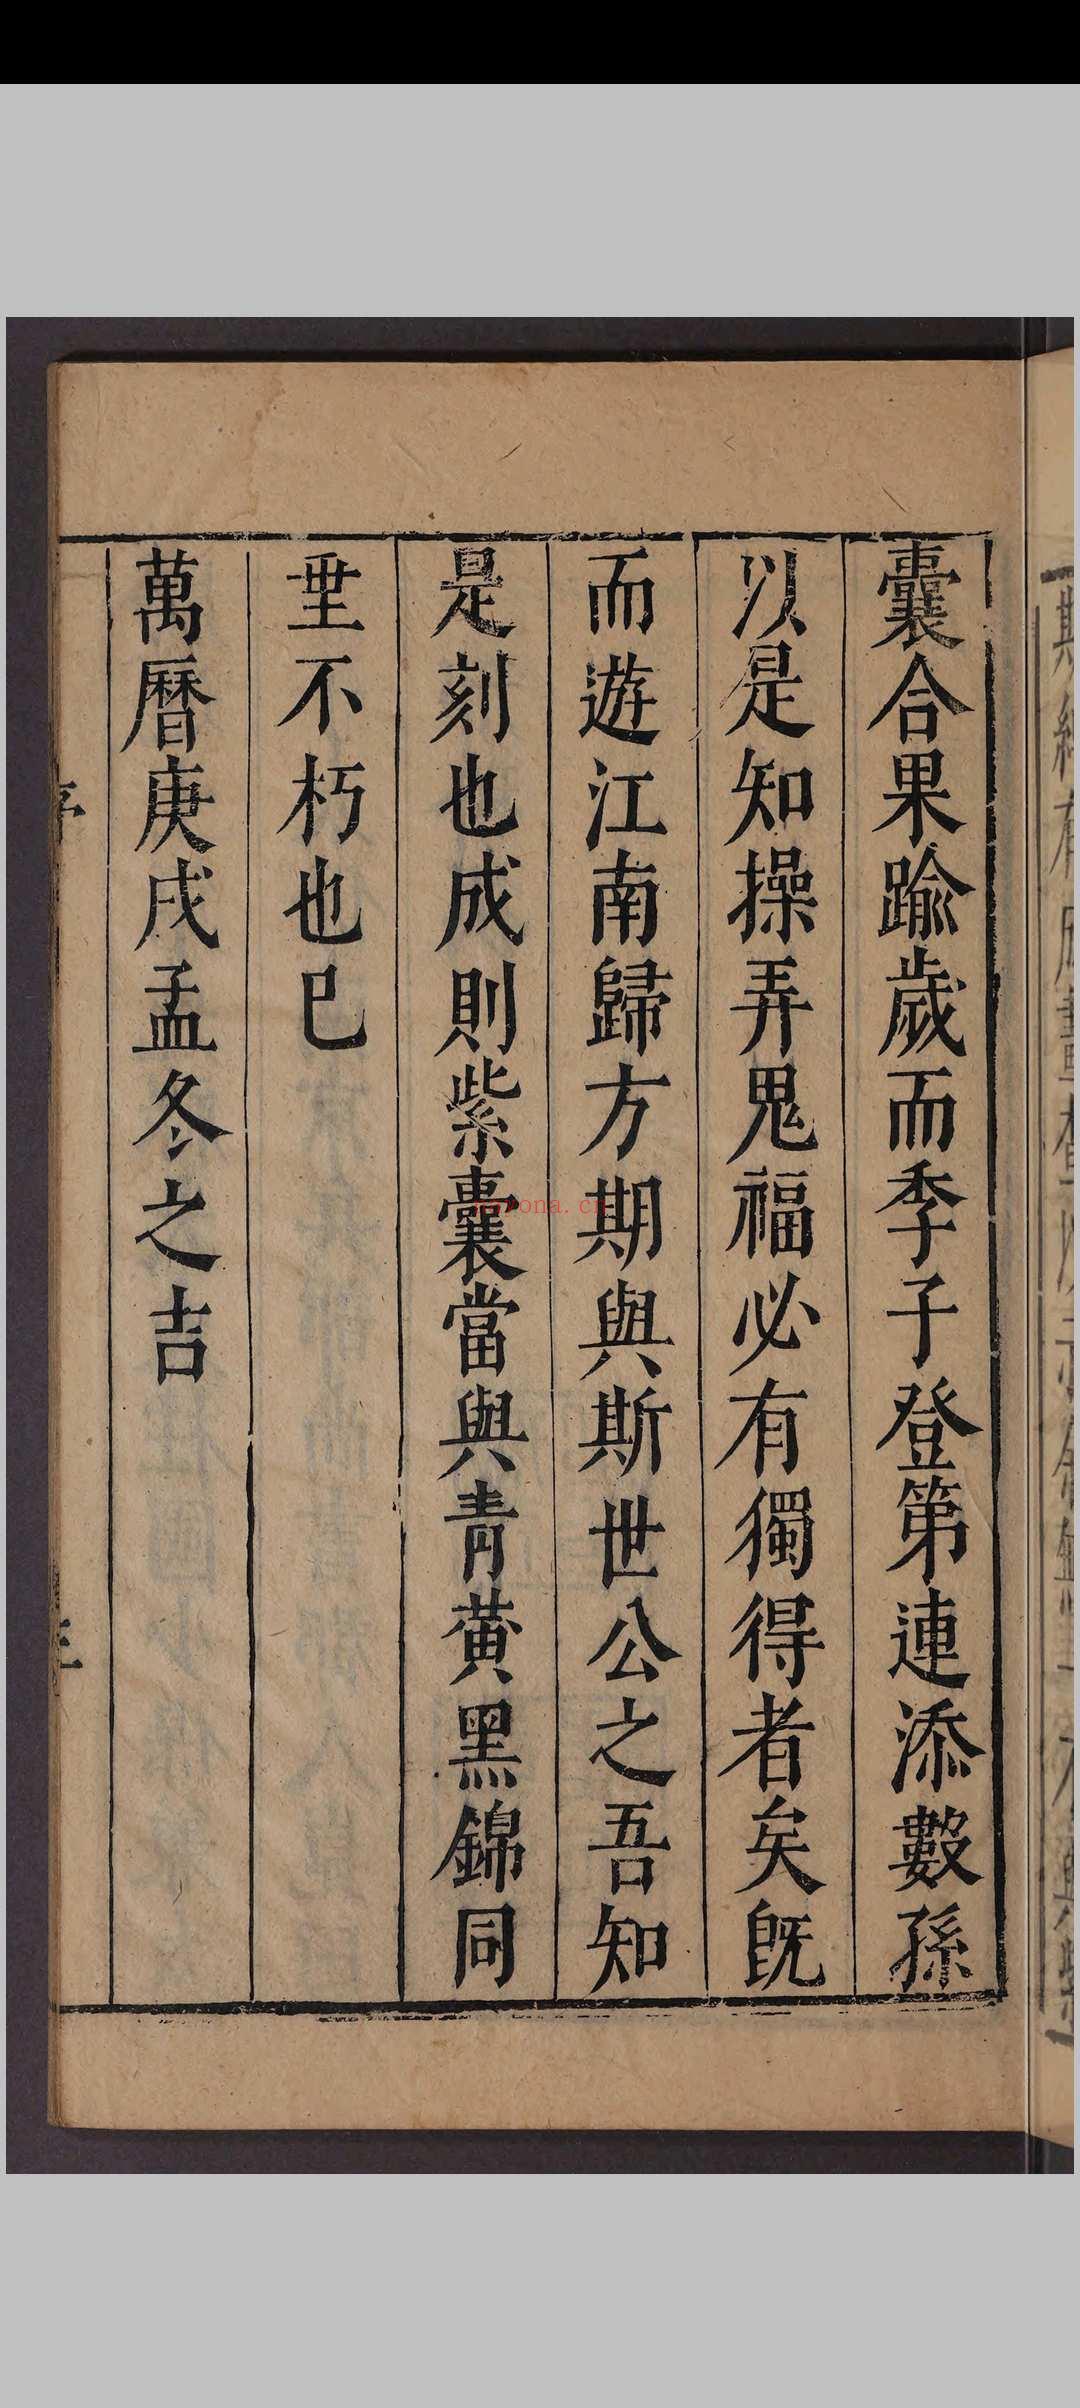 囊合果踰歲而季子登第連添數孫
以是知操弄鬼福必有獨得者矣旣
而遊江南歸方期與斯世公之吾知
是刻也成則紫囊當與青黃黑錦同
垂不朽也已
萬曆庚戌孟冬之吉
序
三